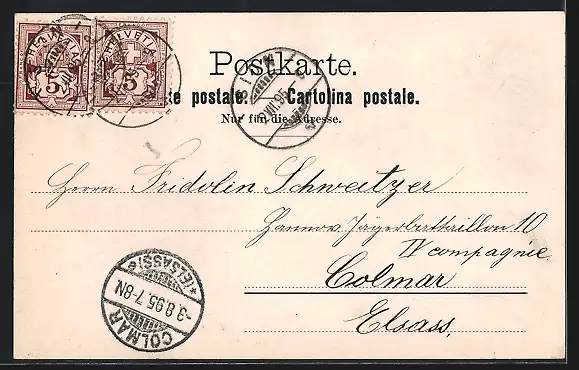 HELVETIA HELVETIA
5 5
Postkarte.
te postale. Cartolina postale.
Nur für die Adresse.
Herrn Fridolin Schweitzer
Hannov. Jägerbattaillon 10
IV compagnie
Colmar
Elsass.
*(ELSASS)e
-3.8.95.7-8N
COLMAR